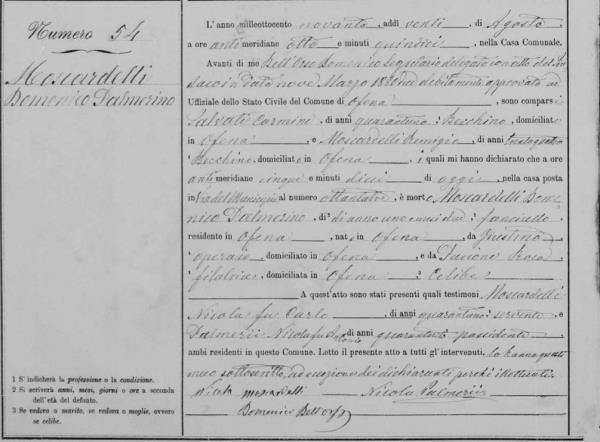 Numero 54
Moscardelli
Domenico Palmerino
L'anno milleottocento novanta, addì venti, di Agosto,
a ore anti meridiane otto e minuti quindici, nella Casa Comunale.
Avanti di me Dell'Orso Domenico Segretario delegato con atto del Sin
daco in data nove Marzo debitamente approvato
Uffiziale dello Stato Civile del Comune di Ofena, sono comparsi
Salvati Carmine, di anni quarantuno, Becchino, domiciliato
in Ofena, e Moscardelli Remigio, di anni trentaquattro
Becchino, domiciliato in Ofena, i quali mi hanno dichiarato che a ore
anti meridiane cinque e minuti dieci di oggi, nella casa posta
in Via del Municipio al numero ottantatre, è morto Moscardelli Dome
nico Palmerino, di anno uno e mesi due, fanciullo
residente in Ofena, nato in Ofena, da Giustino
operaio, domiciliato in Ofena, e da Rosa
filatrice, domiciliata in Ofena, Celibe
A quest'atto sono stati presenti quali testimoni Moscardelli
Nicola fu Carlo, di anni quarantuno, servente, e
Palmerii Nicola fu Antonio, di anni quarantuno, possidente,
ambi residenti in questo Comune. Letto il presente atto a tutti gl'intervenuti, lo hanno questi
meco sottoscritto, ad eccezione dei dichiaranti perchè illetterati.
Nicola moscardelli Nicola Palmerii
Domenico Dell'Orso
1 S'indicherà la professione o la condizione.
2 Si scriverà anni, mesi, giorni o ore a seconda
dell'età del defunto.
3 Se vedovo o marito, se vedova o moglie, ovvero
se celibe.